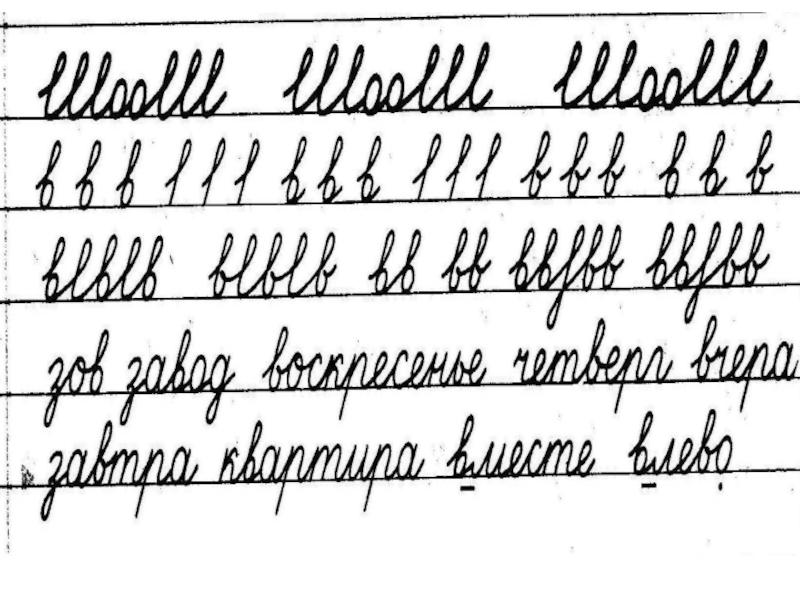 llloolll llloolll llloolll
в в в l l l в в в l l l в в в в в в
вlвlв вlвlв вв вв ввfвв ввfвв
зов завод воскресенье четверг вчера
завтра квартира вместе влево